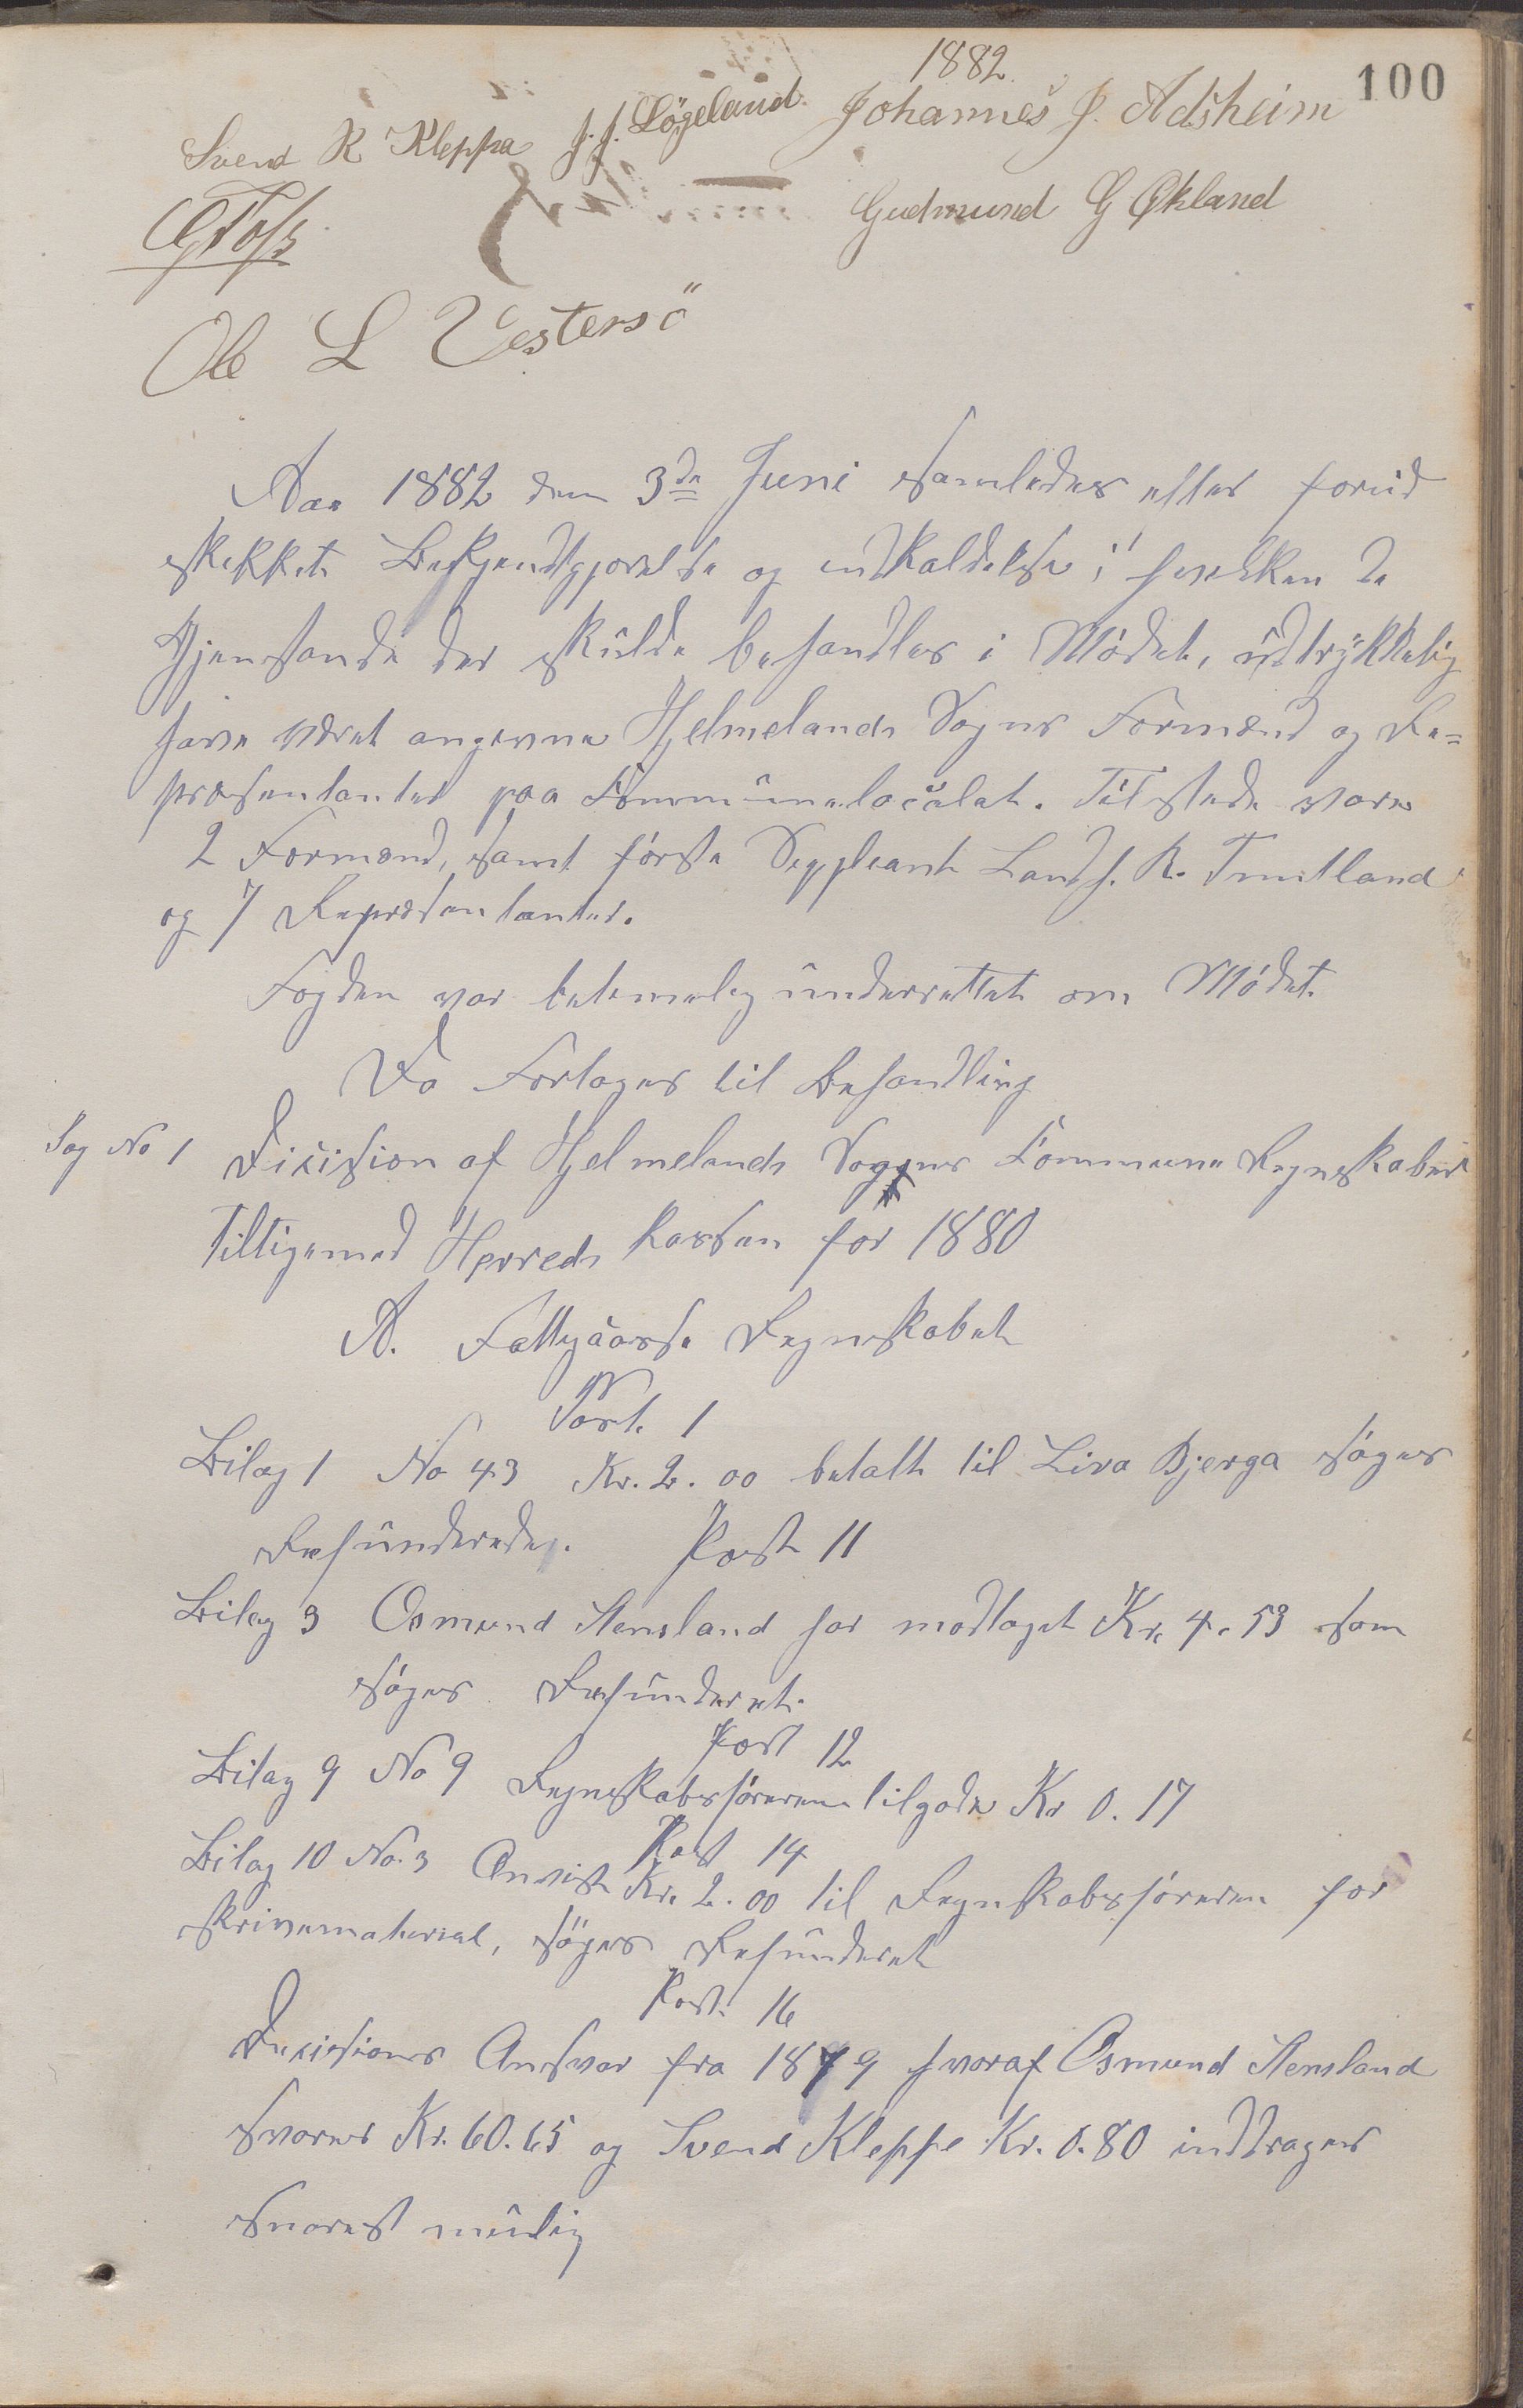 1882
100
Svend R Kleppa J. J. Lögeland. Johannes J. Adsheim
Gudmund G Økland
Ole L Vestersö
Aar 1882 den 3de Juni samledes efter forud
skekket Bekjendtgjørelse og indkaldelse i hvilken de
Gjenstande der skulde behandles i Mödet, udtrykkelig
have været angivne Hjelmelands Sogns Formænd og Re=
præsentanter paa Kommunelocalet. Tilstede vare
2 Formænd, samt förste Suppleant Landh. R. Tuntland
og 7 Repræsentanter.
Fogden var betimelig underrettet om Mödet.
Da Fortages til Behandling
Sag No 1 Decision af Hjelmelands Sogns Kommune Regnskaber
tilligemed Herreds Kassen for 1880
A. Fattigcasse Regnskabet
Post. 1
Bilag 1 No 43 Kr. 2.00 betalt til Liva Bjerga söges
Refunderede. Post 11
Bilag 3 Osmund Stensland har modtaget Kr. 4.53 som
söges Refunderet.
Post 12
Bilag 9 No 9 Regnskabsförerens tilgode Kr 0.17
Post 14
Bilag 10 No. 3 Anvist Kr. 2.00 til Regnskabsföreren for
skrivematerial, söges Refunderet
Post. 16
Decisions Ansvar fra 1879 hvoraf Osmund Stensland
svarer Kr. 60.65 og Svend Kleppe Kr. 0.80 inddrages
snarest mulig